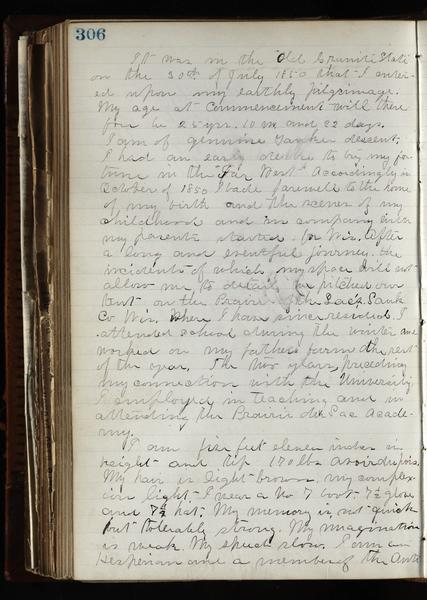 306
It was in the Old Granite State
on the 30th of July 1850 that I enter-
ed upon my earthly pilgrimage.
My age at Commencement will there
fore be 25 yrs. 10 m and 22 days.
I am of genuine Yankee descent;
I had an early desire to try my for-
tune in the "Far West" Accordingly in
October of 1850 I bade farewell to the home
of my birth and the scenes of my
childhood and in company with
my parents started for Wis. After
a long and eventful journey, the
incidents of which, my space will not
allow me to detail, we pitched our
tent on the Prairie of the Sac, Sauk
Co Wis. Where I have since resided. I
attended school during the winter and
worked on my fathers farm the rest
of the year. The two years preceding
my connection with the University
I employed in teaching and in
attending the Prairie du Sac Acade-
my.
I am five feet eleven inches in
height and tip 170 lbs avoirdupois.
My hair is light brown, my complex-
ion light. I wear a No 7 boot 7¾ glove
and 7⅛ hat. My memory is not quick
but tolerably strong. My imagination
is weak. My speech slow. I am an
Hesperian and a member of the Anti